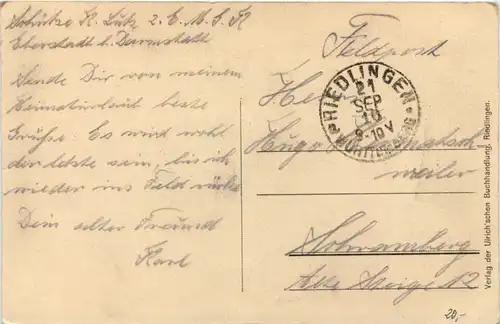 Schütze K. Lutz 2. E. M. G. K
Eberstadt b. Darmstadt
Sende Dir von meinem
Heimaturlaub beste
Grüße. Es wird wohl
der letzte sein, bis ich
wieder ins Feld rücke
Dein alter Freund
Karl
Feldpost
RIEDLINGEN
21
SEP
9-10 V
WÜRTTEMBERG
Hugo
weiler
Schramberg
Alte Steige 12
Verlag der Ulrich'schen Buchhandlung, Riedlingen.
20,-